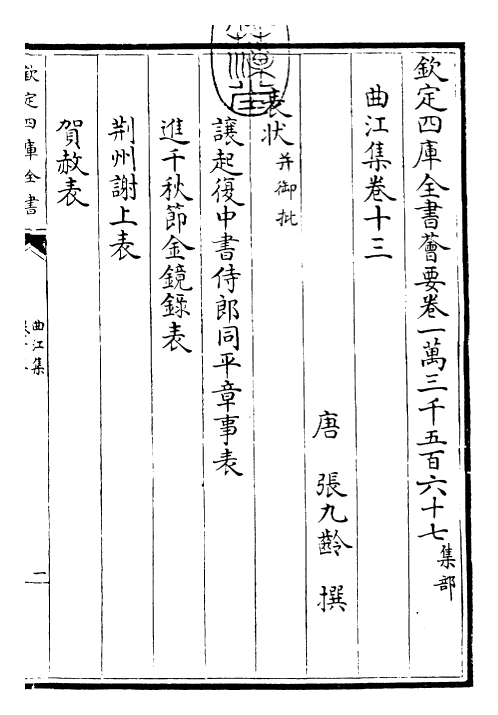 欽定四庫全書薈要卷一萬三千五百六十七集部
曲江集卷十三
唐 張九齡 撰
表狀并御批
讓起復中書侍郎同平章事表
進千秋節金鏡錄表
荆州謝上表
賀赦表
欽定四庫全書
曲江集
一